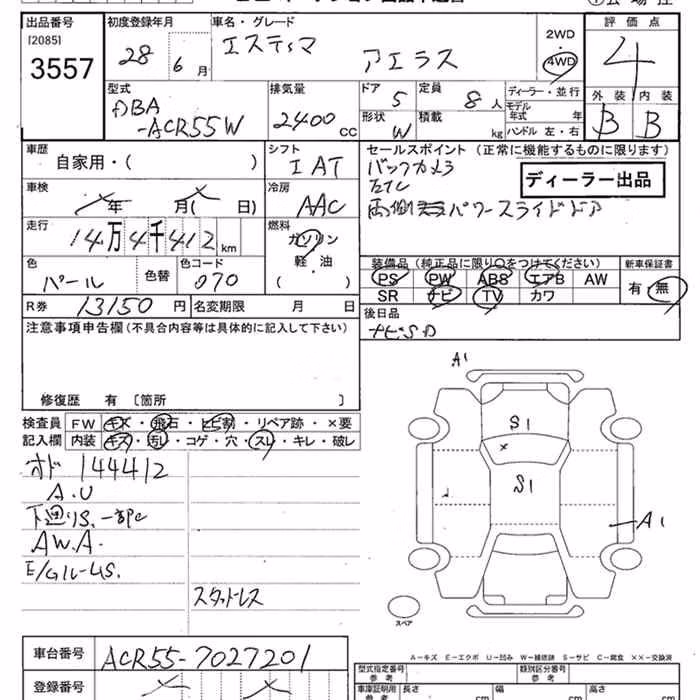 出品番号 初度登録年月 車名・グレード 評価点
[2085]
3557
28 6月
エスティマ アエラス
2WD
・
4WD
4
型式 排気量 ドア 定員 ディーラー・並行 外装 内装
DBA
-ACR55W
2400 CC
5
8人
モデル年式 年
形状 積載
W kg
ハンドル 左・右
B B
車歴 シフト セールスポイント (正常に機能するものに限ります)
自家用・( )
IAT
バックカメラ
ETC
両側 パワースライドドア
ディーラー出品
車検 冷房
年 月( 日)
AAC
走行 燃料
14万4千412km
ガソリン
軽・油
( )
装備品 (純正品に限り○をつけてください) 新車保証書
PS PW ABS エアB AW
SR ナビ TV カワ
有・無
色 色替 色コード
パール 070
後日品
ナビSD
R券 13150円 名変期限 月 日
注意事項申告欄(不具合内容等は具体的に記入して下さい)
修復歴 有 [箇所 ]
検査員 FW キズ・飛石・ヒビ割・リペア跡・×要
記入欄 内装 キズ・汚レ・コゲ・穴・スレ・キレ・破レ
オド 144412
A.U
下廻リS.一部C
A.W.A.
スタッドレス
A1
S1
S1
A1
スペア
A−キズ E−エクボ U−凹み W−補修跡 S−サビ C−腐食 ××−交換済
車台番号 ACR55-7027201
登録番号
型式指定番号 参考 類別区分番号 参考
車庫証明用 参考 長さ cm 幅 cm 高さ cm